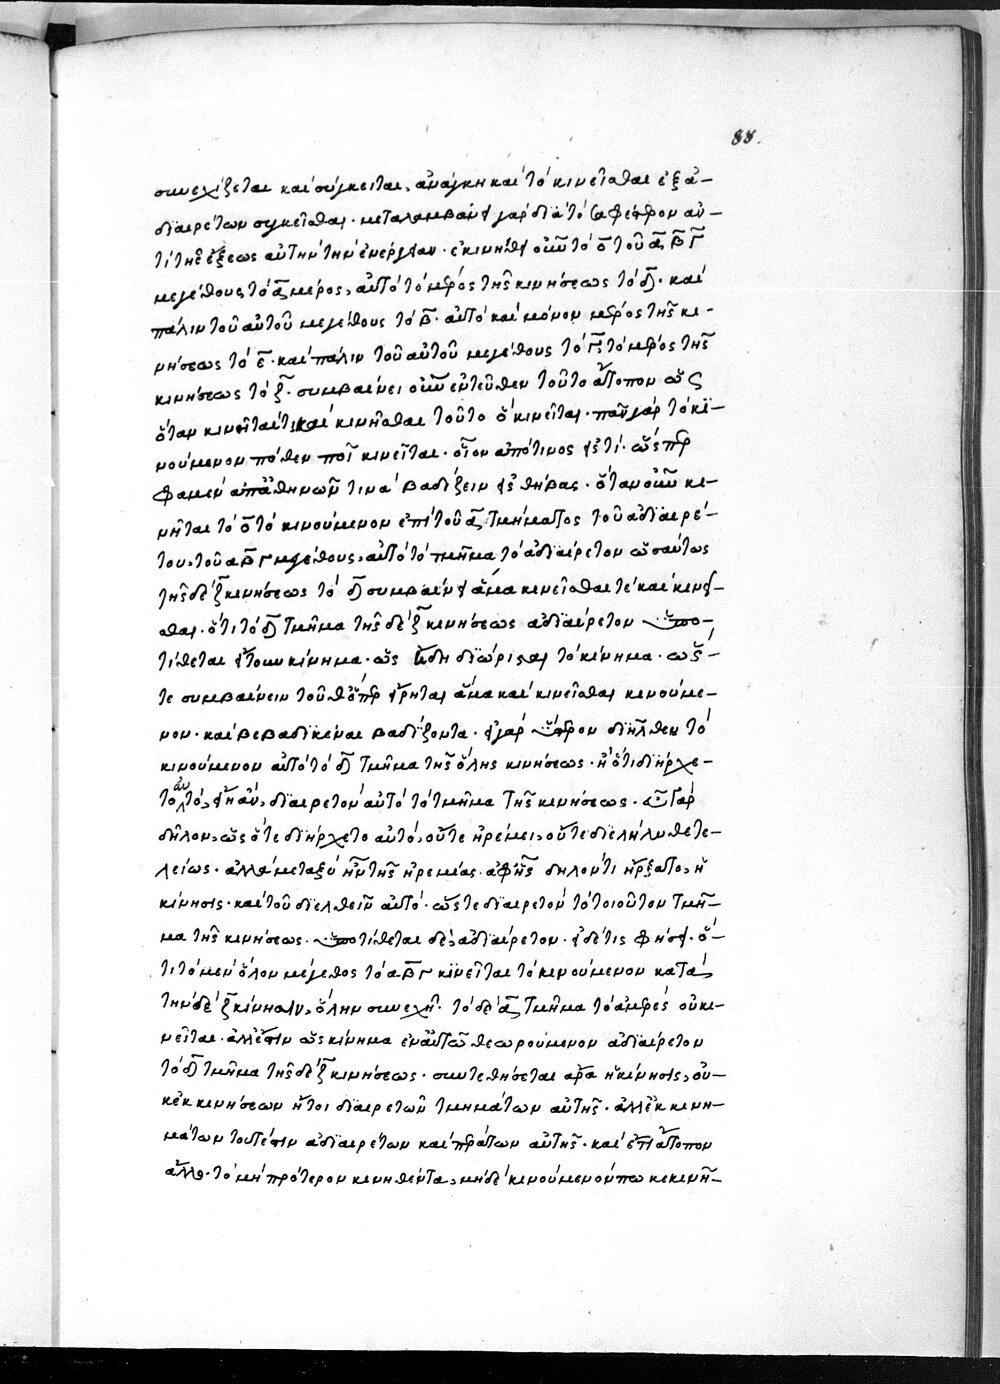 88.
συνεχίζεται καὶ σύγκειται, ἀνάγκη καὶ τὸ κινεῖσθαι ἐξ ἀ-
διαιρέτων συγκεῖσθαι· μεταλαμβάνει γὰρ διὰ τὸ σαφέστερον ἀν-
τὶ τῆς ἕξεως αὐτὴν τὴν ἐνέργειαν· ἐκινήθη οὖν τὸ ο̅ τοῦ α̅ β̅ γ̅
μεγέθους τὸ α̅ μέρος, αὐτὸ τὸ μέρος τῆς κινήσεως τὸ δ̅· καὶ
πάλιν τοῦ αὐτοῦ μεγέθους τὸ β̅· αὐτὸ καὶ μόνον μέρος τῆς κι-
νήσεως τὸ ε̅· καὶ πάλιν τοῦ αὐτοῦ μεγέθους τὸ γ̅ τὸ μέρος τῆς
κινήσεως τὸ ζ̅· συμβαίνει οὖν ἐντεῦθεν τοῦτο ἄτοπον ὡς
ὅταν κινῆται τι καὶ κινεῖσθαι τοῦτο ὃ κινεῖται· πᾶν γὰρ τὸ κι-
νούμενον πόθεν ποῖ κινεῖται· οἷον ἀπό τινος εἴς τι· ὥσπερ
φαμὲν ἀπ' ἀθηνῶν τινὰ βαδίζειν εἰς θήβας· ὅταν οὖν κι-
νῆται τὸ ο̅ τὸ κινούμενον ἐπὶ τοῦ α̅ τμήματος τοῦ ἀδιαιρέ-
του, τοῦ α β̅ γ μεγέθους, αὐτὸ τὸ τμῆμα τὸ ἀδιαίρετον ὡσαύτως
τῆς δ ε ζ̅ κινήσεως τὸ δ̅ συμβαίνει ἅμα κινεῖσθαί τε καὶ κινεῖ-
σθαι· ὅτι τὸ δ̅ τμῆμα τῆς δ ε ζ̅ κινήσεως ἀδιαίρετον ὑπο-
τίθεται ἤτουν κίνημα· ὡς ἤδη διώρισται τὸ κίνημα· ὥσ-
τε συμβαίνειν τοῦθ' ὅπερ εἴρηται ἅμα καὶ κινεῖσθαι κινούμε-
νον· καὶ βεβαδικέναι βαδίζοντα· εἰ γὰρ ὕστερον διῆλθεν τὸ
κινούμενον αὐτὸ τὸ δ̅ τμῆμα τῆς ὅλης κινήσεως· ἢ ὅτι διήρχε-
το αὐτό, εἴη ἂν, διαιρετὸν αὐτὸ τὸ τμῆμα τῆς κινήσεως· εἰ γὰρ
δῆλον, ὡς ὅτε διήρχετο αὐτό, οὔτε ἠρέμει, οὔτε διεληλύθει τε-
λείως· ἀλλὰ μεταξὺ ἦν τῆς ἠρεμίας ἀφ' ἧς δηλονότι ἤρξατο, ἡ
κίνησις· καὶ τοῦ διελθεῖν αὐτό· ὥστε διαιρετὸν τὸ τοιοῦτον τμῆ-
μα τῆς κινήσεως· ὑποτίθεται δὲ, ἀδιαίρετον· εἰ δέ τις φήσει· ὅ-
τι τὸ μὲν ὅλον μέγεθος τὸ α β̅ γ κινεῖται τὸ κινούμενον κατὰ
τὴν δ ε ζ̅ κίνησιν, ὅλην συνεχῆ· τὸ δὲ α̅ τμῆμα τὸ ἀμερές οὐ κι-
νεῖται· ἀλλ' ἔστιν ὡς κίνημα ἐν αὐτῷ θεωρούμενον ἀδιαίρετον
τὸ δ̅ τμῆμα τῆς δ ε ζ̅ κινήσεως· συντεθήσεται ἄρα ἡ κίνησις, οὐ-
κ ἐκ κινήσεων ἤτοι διαιρετῶν τμημάτων αὐτῆς· ἀλλ' ἐκ κινη-
μάτων τουτέστιν ἀδιαιρέτων καὶ περάτων αὐτῆς· καὶ ἔτι ἄτοπον
ἄλλο· τὸ μὴ πρότερον κινηθέντα, μηδὲ κινούμενόν πω κεκινῆ-